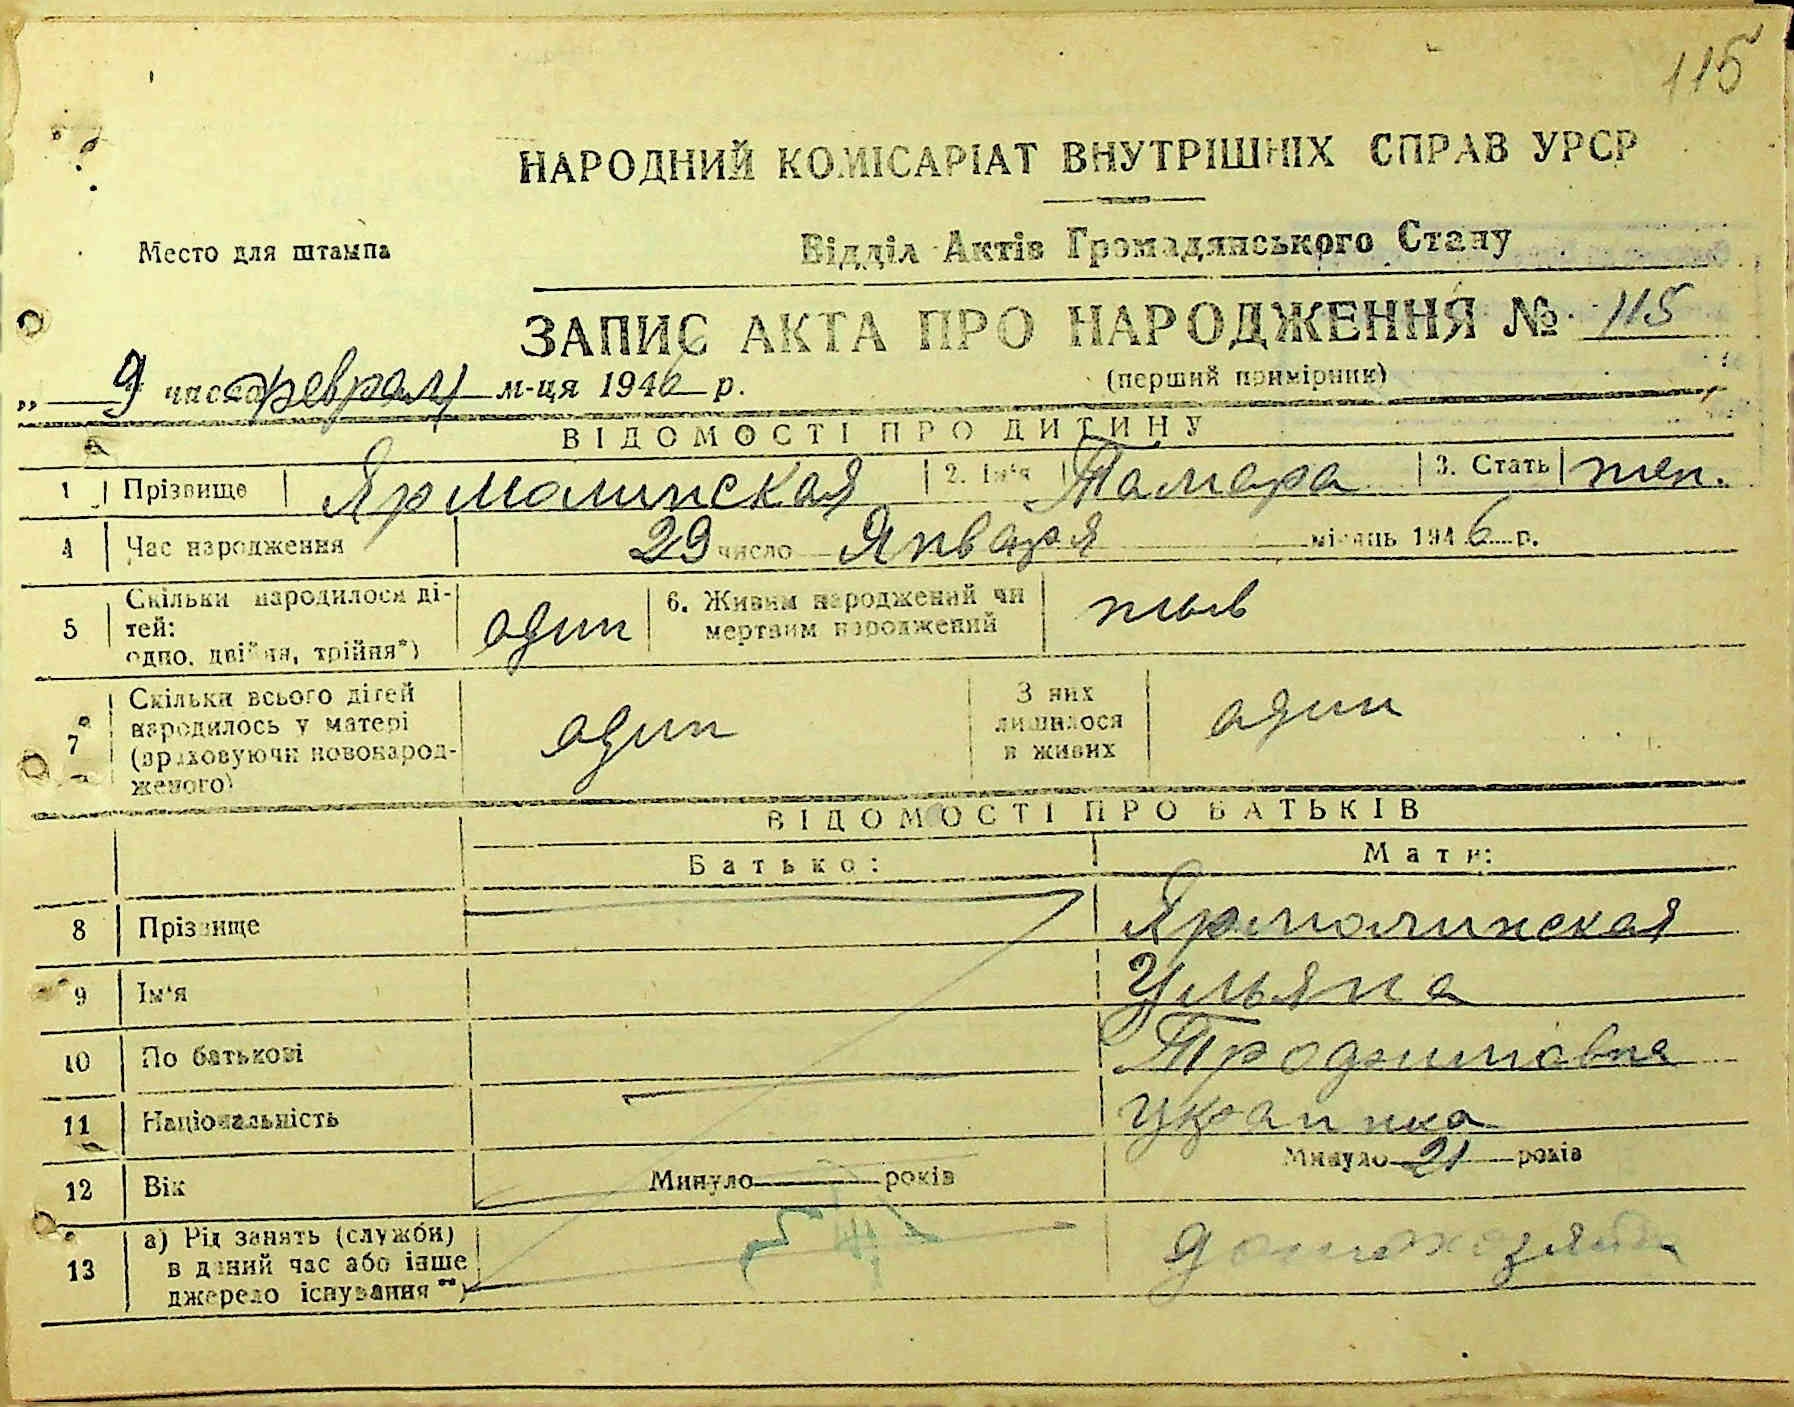 115
НАРОДНИЙ КОМІСАРІАТ ВНУТРІШНІХ СПРАВ УРСР
Место для штампа
Відділ Актів Громадянського Стану
ЗАПИС АКТА ПРО НАРОДЖЕННЯ № 115
„ 9 числа феврал м-ця 1946 р.
(перший примірник)
ВІДОМОСТІ ПРО ДИТИНУ
1 Прізвище Ярмолинская 2. Ім'я Тамара 3. Стать жен.
4 Час народження 29 число Января місяць 1946 р.
5 Скільки народилося ді-
тей:
одно, двійня, трійня*) один 6. Живим народжений чи
мертвим народжений жыв
7 Скільки всього дітей
народилось у матері
(враховуючи новонарод-
женого) один З них
лишилося
в живих один
ВІДОМОСТІ ПРО БАТЬКІВ
Батько: Мати:
8 Прізвище Ярмолинская
9 Ім'я Ульяна
10 По батькові Трофимовна
11 Національність украинка
12 Вік Минуло років Минуло 21 років
13 а) Рід занять (служби)
в даний час або інше
джерело існування **) домохозяйка